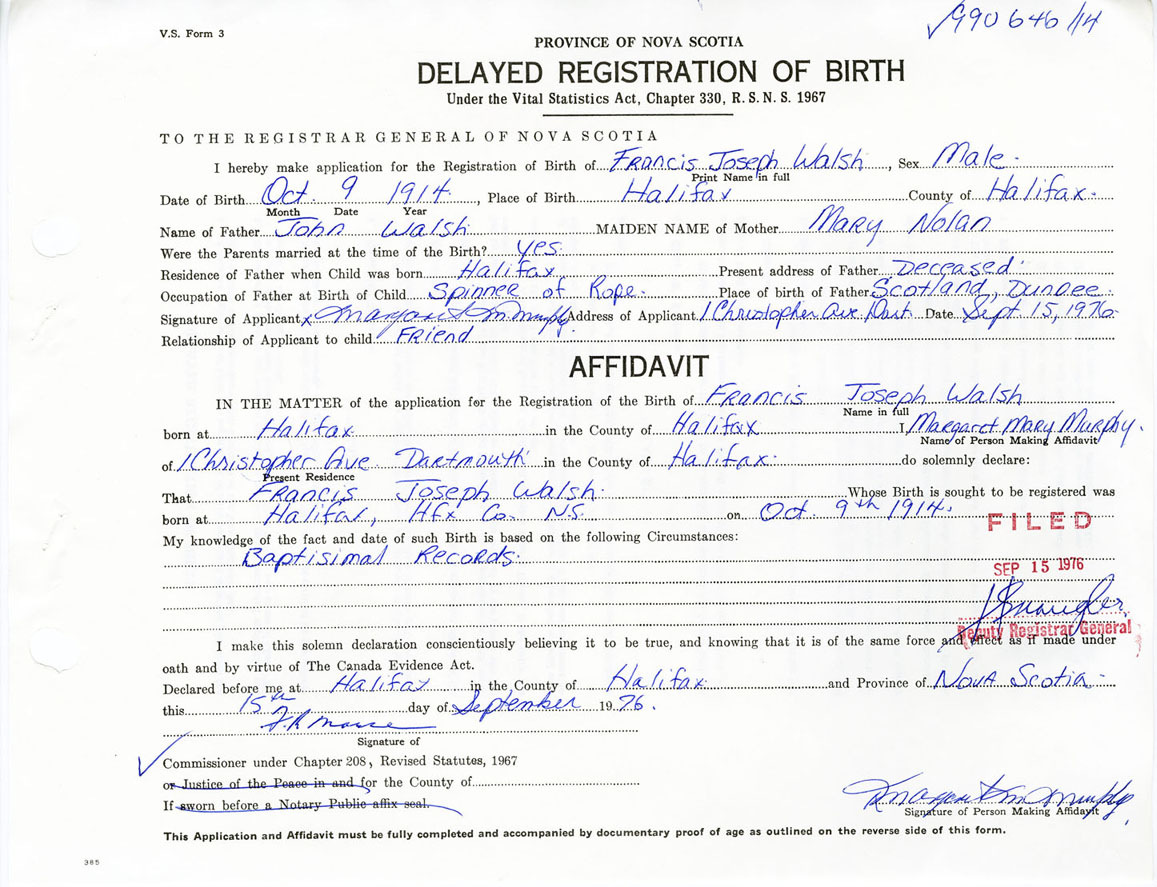 V.S. Form 3
990646/14
PROVINCE OF NOVA SCOTIA
DELAYED REGISTRATION OF BIRTH
Under the Vital Statistics Act, Chapter 330, R. S. N. S. 1967
TO THE REGISTRAR GENERAL OF NOVA SCOTIA
I hereby make application for the Registration of Birth of Francis Joseph Walsh, Sex Male.
Print Name in full
Date of Birth Oct. 9 1914, Place of Birth Halifax County of Halifax.
Month Date Year
Name of Father John Walsh MAIDEN NAME of Mother Mary Nolan
Were the Parents married at the time of the Birth? Yes.
Residence of Father when Child was born Halifax Present address of Father Deceased.
Occupation of Father at Birth of Child Spinner of Rope. Place of birth of Father Scotland, Dundee.
Signature of Applicant x Margaret M Murphy Address of Applicant 1 Christopher Ave Dart. Date Sept 15, 1976.
Relationship of Applicant to child Friend
AFFIDAVIT
IN THE MATTER of the application for the Registration of the Birth of Francis Joseph Walsh
Name in full
born at Halifax in the County of Halifax I, Margaret Mary Murphy.
Name of Person Making Affidavit
of 1 Christopher Ave Dartmouth in the County of Halifax. do solemnly declare:
Present Residence
That Francis Joseph Walsh. Whose Birth is sought to be registered was
born at Halifax, Hfx Co. NS. on Oct. 9th 1914.
FILED
My knowledge of the fact and date of such Birth is based on the following Circumstances:
Baptisimal Records.
SEP 15 1976
Deputy Registrar General
I make this solemn declaration conscientiously believing it to be true, and knowing that it is of the same force and effect as if made under
oath and by virtue of The Canada Evidence Act.
Declared before me at Halifax in the County of Halifax. and Province of Nova Scotia.
this 15th day of September 1976.
Signature of
Commissioner under Chapter 208, Revised Statutes, 1967
or Justice of the Peace in and for the County of
If sworn before a Notary Public affix seal.
Margaret M Murphy
Signature of Person Making Affidavit
This Application and Affidavit must be fully completed and accompanied by documentary proof of age as outlined on the reverse side of this form.
385